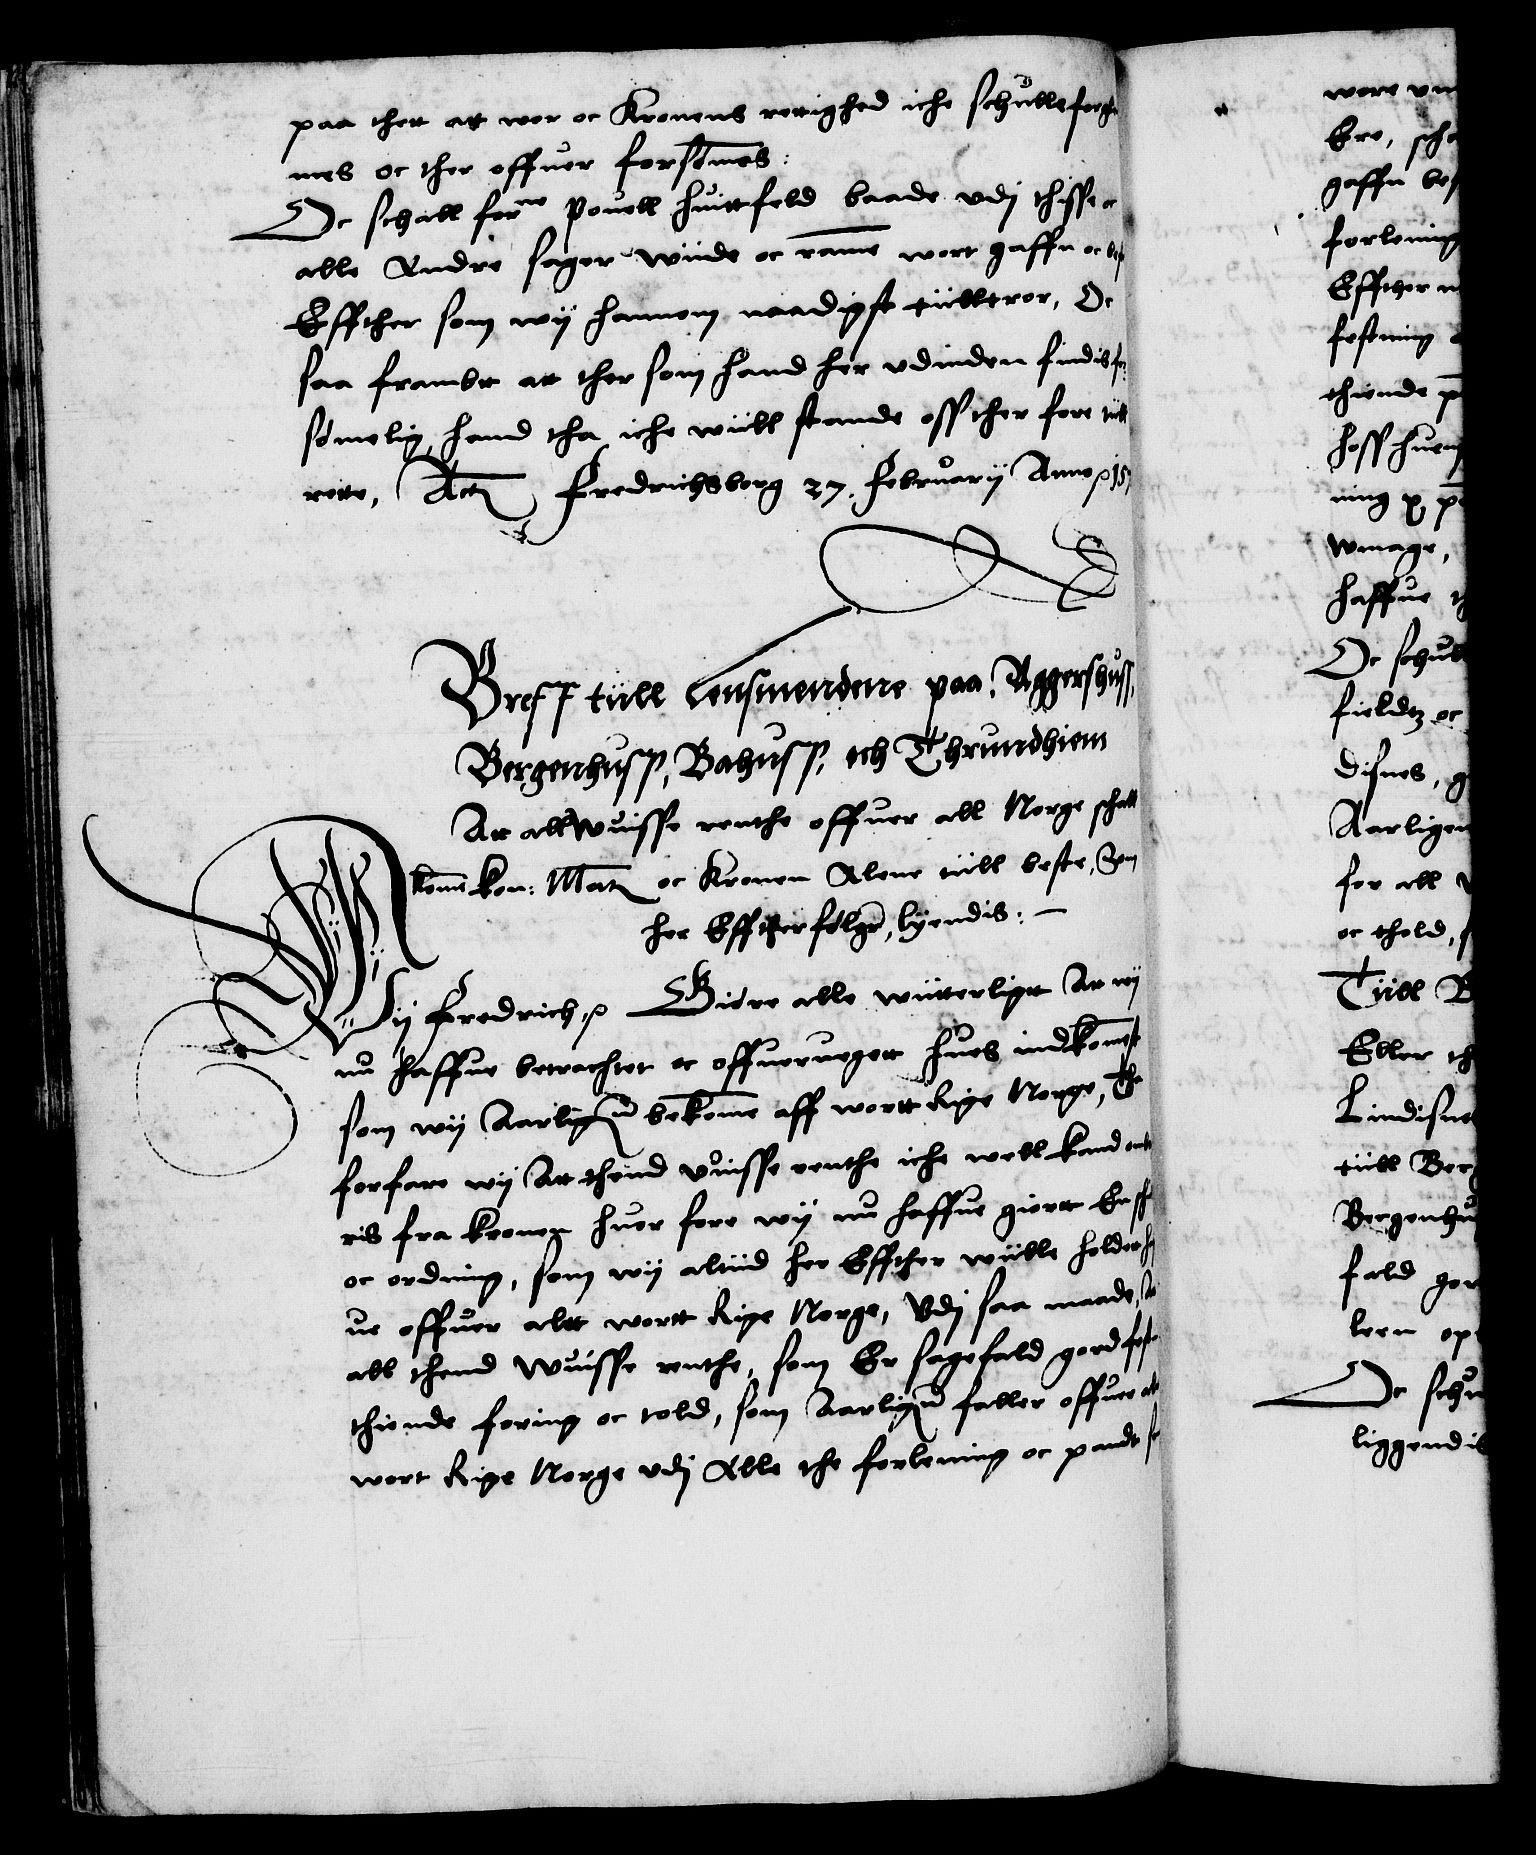 paa thett att wor oc Kronens rettighed iche schulle forgle
mes oc ther offuer forsømes:
Oc schall forne Pouell Huittfeld baade vdj thisse oc
alle Andre sager wiide oc rame wort gaffn oc
Effther som wij hannom naadigst tiilltror, Oc
saa frambt att ther som hand her vdinden findis for
sømelig, hand tha iche wiill stande oss ther fore tiill
rette, Actum Fredrichsborg 27. Februarij Anno 157
Breff tiill Lensmendene paa Aggershuss,
Bergenhuss, Bahuss, och Thrundhiem
At all wuisse renthe offuer all Norge schall
komme kon: Matt oc Kronen Alene tiill beste, Som
her Effther følger, lyendis:
Wij Fredrich Giøre alle wiitterligt At wij
nu haffue betrachtet oc offueruegett hues indkomst
som wij Aarligen bekome aff wortt Rige Norge, Tha
forfare wij Att thend vuisse renthe iche well kand ent
ris fra kronen huor fore wij nu haffue giortt En sch
oc ordning, som wij altiid her Effther wiille holdet
ue offuer altt wortt Rige Norge, Vdj saa maade, At
all thend wuisse renthe, som Er sagefald gord fest
thiende foring oc told, som Aarligen faller offuer alt
wort Rige Norge vdj Alle the forlening oc pandt
wore
Ere, sch
gaffn
forlening
Effther
festning
thiende
hoss huer
ning
wmage,
haffue
Oc schul
fieldtz oc
disnes,
Aarligen
for all
oc thold,
Tiill B
Eller th
Lindisne
tiill Ber
Bergenhu
fald
leen
Oc schu
liggendis